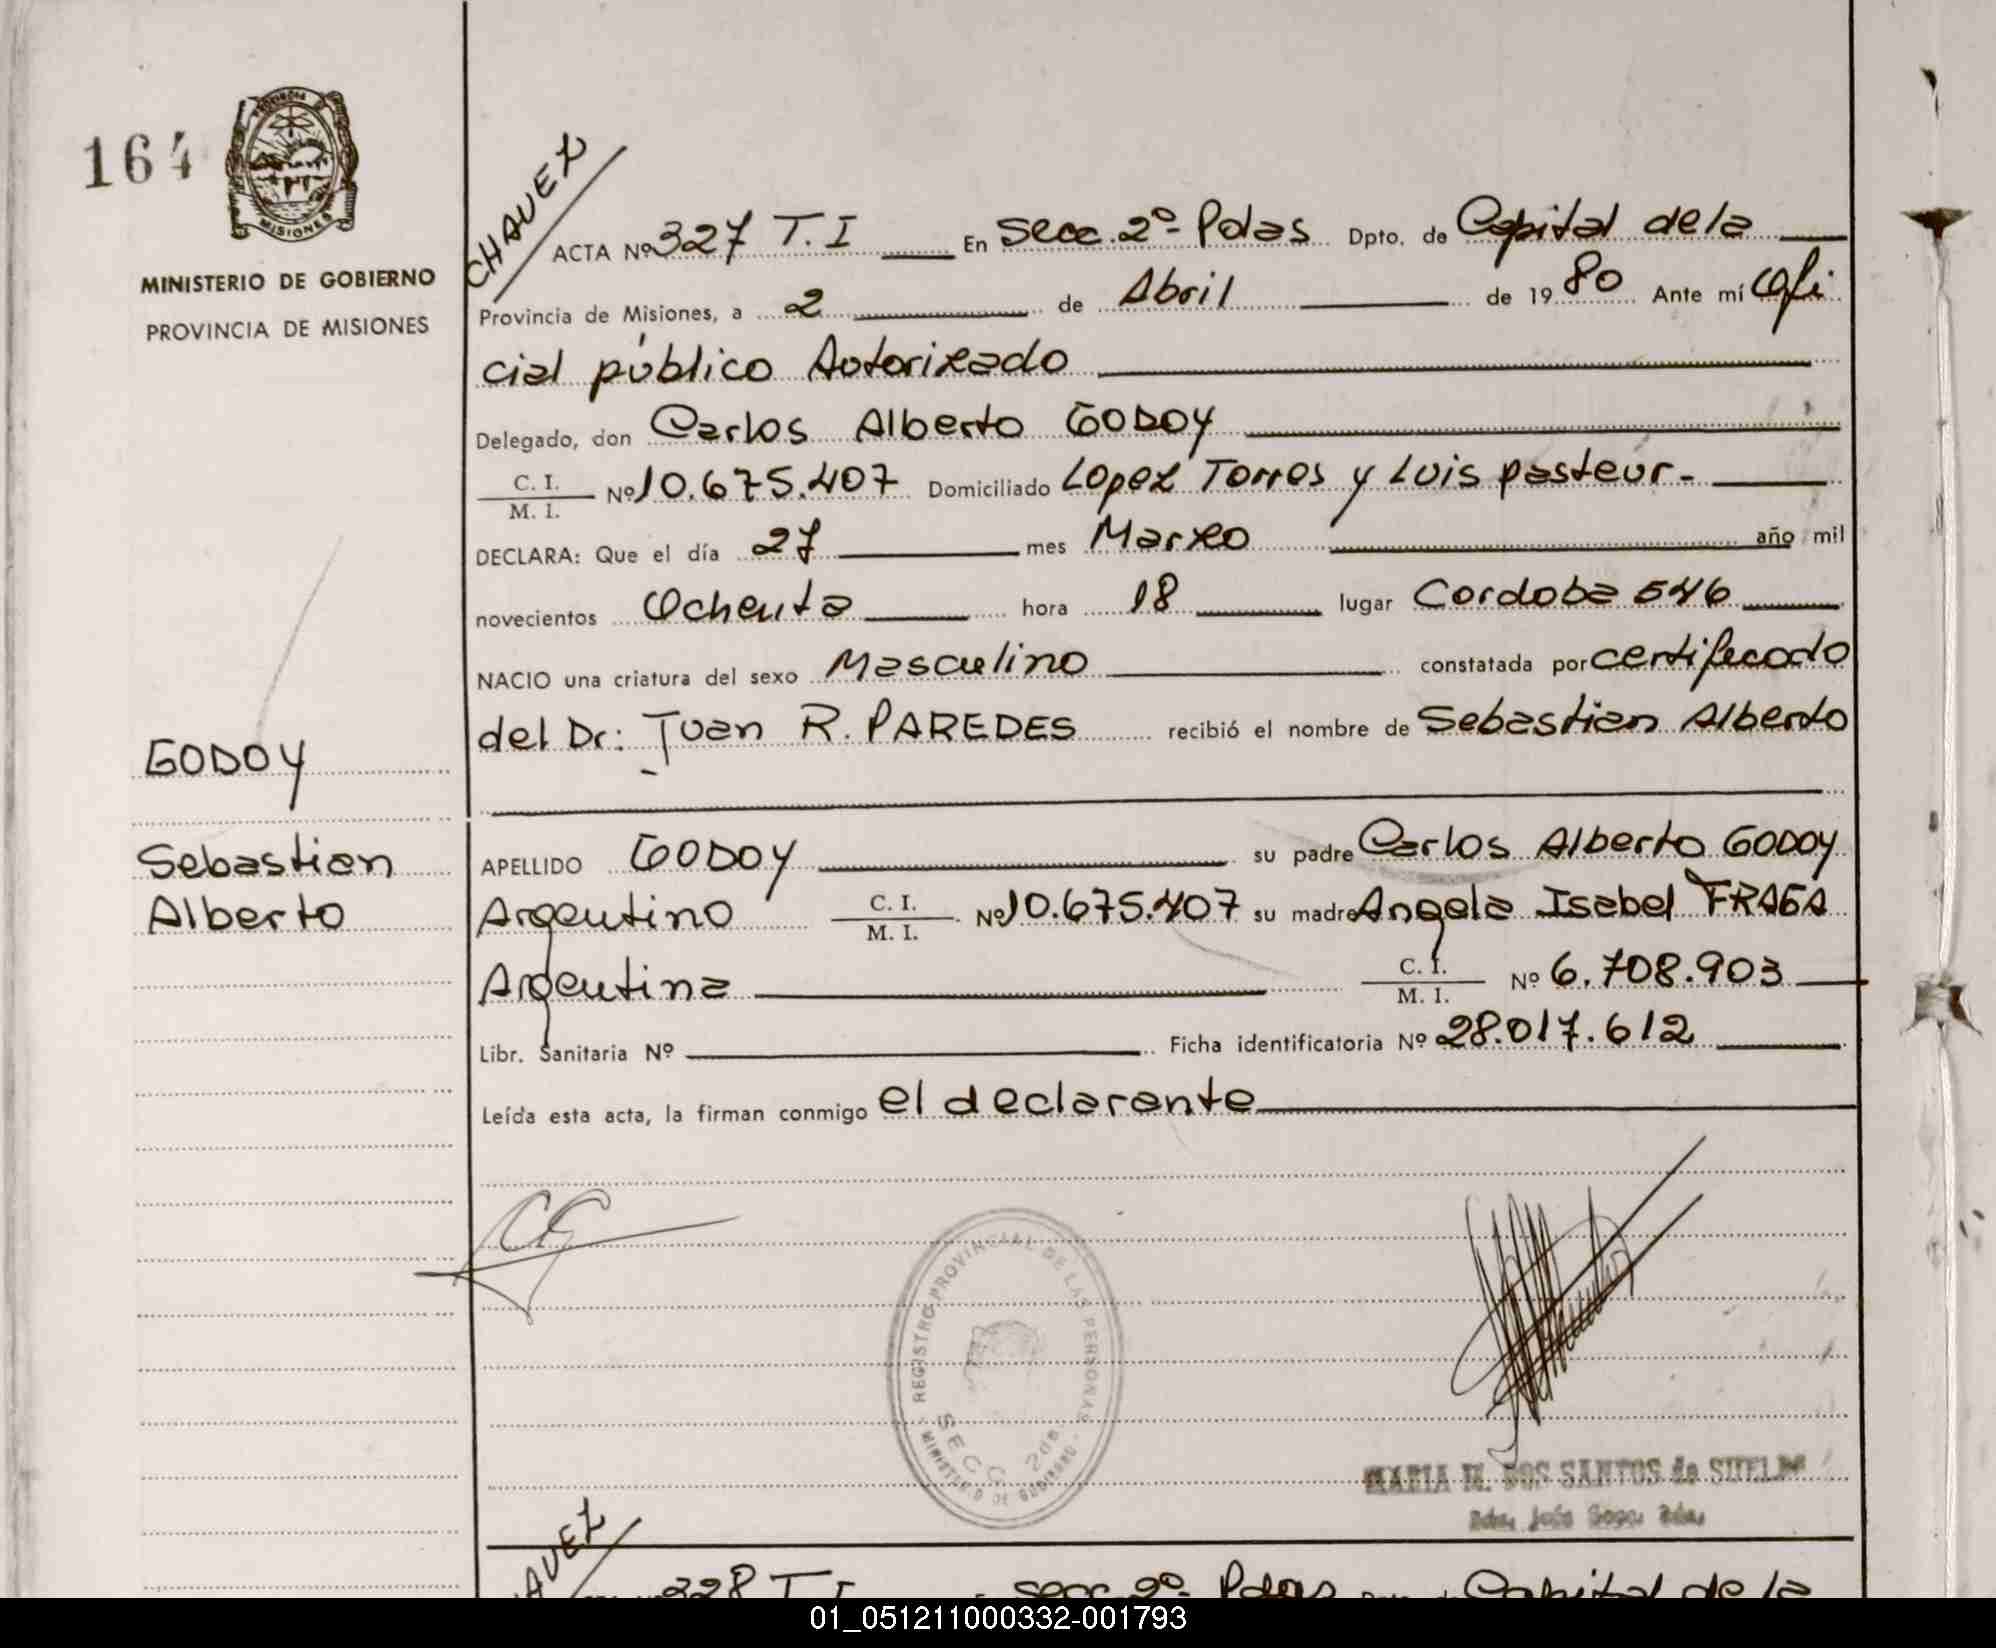 164
PROVINCIA
MISIONES
MINISTERIO DE GOBIERNO
PROVINCIA DE MISIONES
CHAVEZ
ACTA Nº 327 T. I En Secc. 2º- Pdas Dpto. de Capital de la
Provincia de Misiones, a 2 de Abril de 1980 Ante mí Ofi
cial público Autorizado
Delegado, don Carlos Alberto GODOY
C. I.
M. I. Nº 10.675.407 Domiciliado Lopez Torres y Luis pasteur.-
DECLARA: Que el día 27 mes Marzo año mil
novecientos Ochenta hora 18 lugar Cordoba 546
NACIO una criatura del sexo Masculino constatada por certificado
del Dr: Juan R. PAREDES recibió el nombre de Sebastian Alberto
GODOY
Sebastian
Alberto
APELLIDO GODOY su padre Carlos Alberto GODOY
Argentino C. I.
M. I. Nº 10.675.407 su madre Angela Isabel FRAGA
Argentina C. I.
M. I. Nº 6.708.903
Libr. Sanitaria Nº Ficha identificatoria Nº 28.017.612
Leída esta acta, la firman conmigo el declarante
REGISTRO PROVINCIAL DE LAS PERSONAS
SECC 2da.
MINISTERIO DE GOBIERNO
MARIA DOS SANTOS de SUELDO
AVEZ
328 T I Secc 2º- Pdas Capital de la
01_051211000332-001793